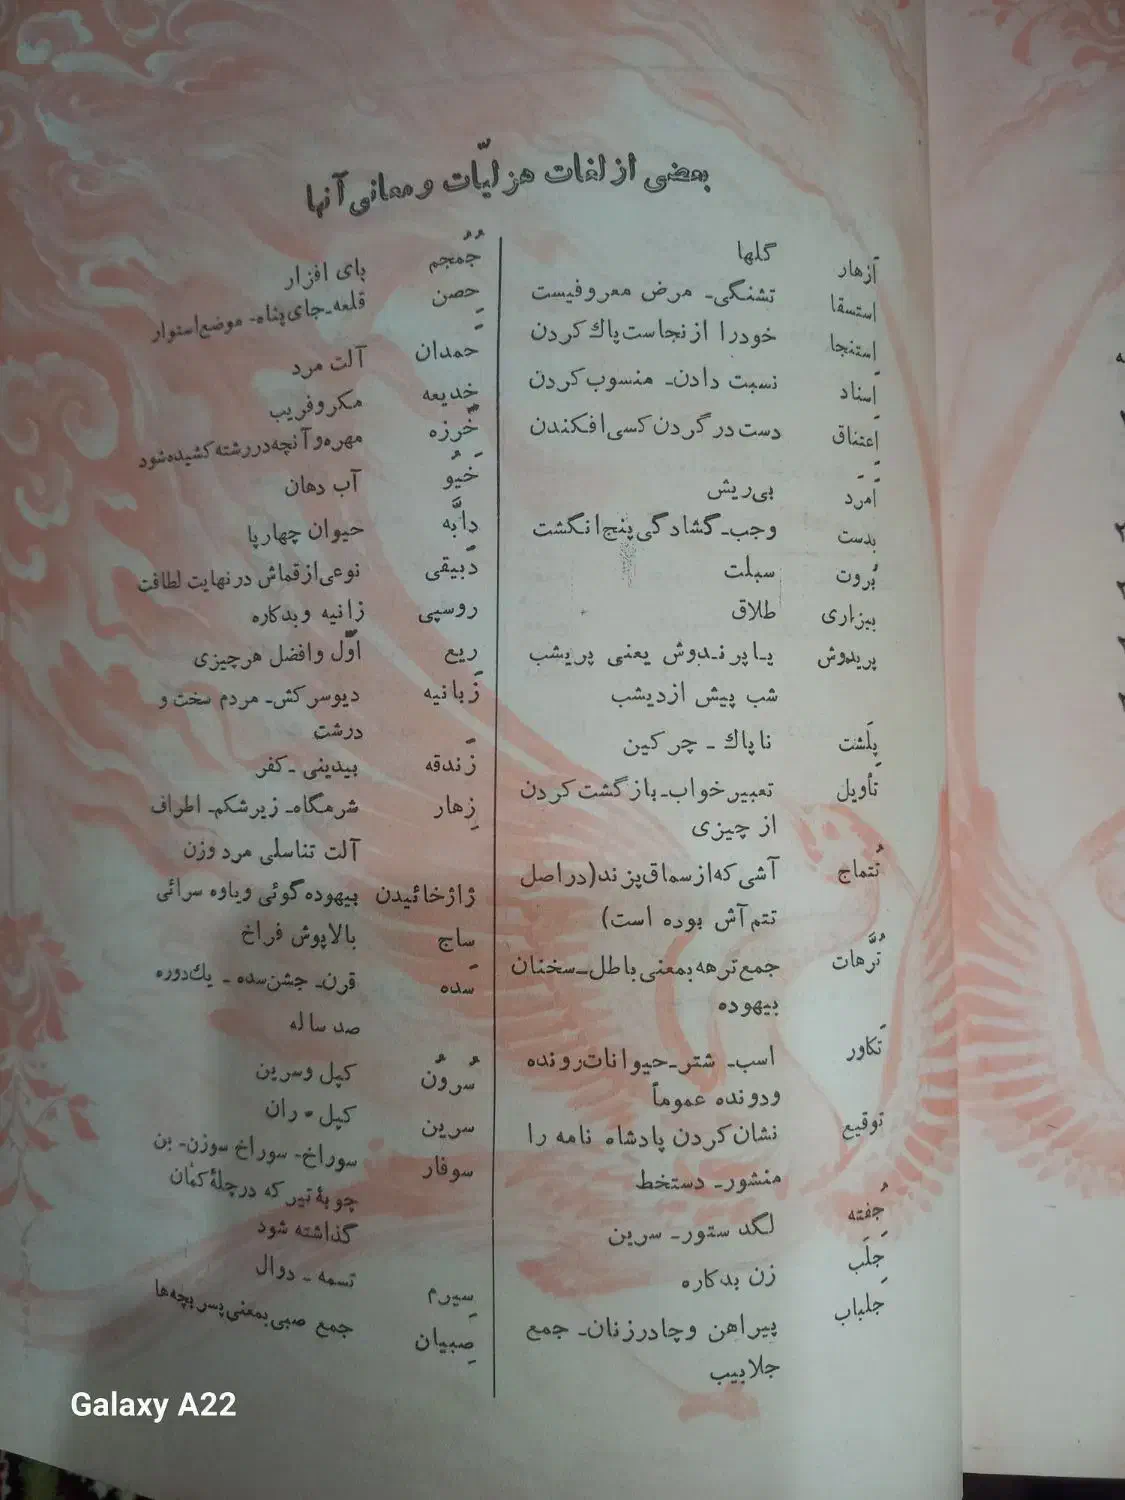 بعضی از لغات هزلیّات و معانی آنها
اَزهار گلها
اِستسقا تشنگی ـ مرض معروفیست
اِستنجا خودرا از نجاست پاك کردن
اِسناد نسبت دادن ـ منسوب کردن
اِعتناق دست در گردن کسی افکندن
اَمرَد بی‌ریش
بِدست وجب ـ گشادگی پنج انگشت
بُروت سبلت
بیزاری طلاق
پریدوش یـا پرنـدوش یعنی پریشب
شب پیش از دیشب
پِلَشت ناپاك ـ چرکین
تأویل تعبیر خواب ـ بازگشت کردن
از چیزی
تُتماج آشی که از سماق پزند (در اصل
تتم آش بوده است)
تُرَّهات جمع ترهه بمعنی باطل ـ سخنان
بیهوده
تَکاور اسب ـ شتر ـ حیوانات رونده
ودونده عموماً
توقیع نشان کردن پادشاه نامه را
منشور ـ دستخط
جُفته لگد ستور ـ سرین
جِلَب زن بدکاره
جِلباب پیراهن و چادر زنان ـ جمع
جلابیب
جُمجُم پای افزار
حِصن قلعه ـ جای پناه ـ موضع استوار
حِمدان آلت مرد
خدیعه مکر و فریب
خَرزه مهره و آنچه در رشته کشیده شود
خَیُو آب دهان
دابَّه حیوان چهارپا
دَبیقی نوعی از قماش در نهایت لطافت
روسپی زانیه و بدکاره
ریع اوّل وافضل هرچیزی
زَبانیه دیو سرکش ـ مردم سخت و
درشت
زَندقه بیدینی ـ کفر
زِهار شرمگاه ـ زیر شکم ـ اطراف
آلت تناسلی مرد وزن
ژاژخائیدن بیهوده گوئی و یاوه سرائی
ساج بالاپوش فراخ
سِده قرن ـ جشن سده ـ یك دوره
صد ساله
سُرُون کپل وسرین
سرین کپل ـ ران
سوفار سوراخ ـ سوراخ سوزن ـ بن
چوبۀ تیر که در چلۀ کمان
گذاشته شود
سِیرم تسمه ـ دوال
صِبیان جمع صبی بمعنی پسر بچه‌ها
Galaxy A22